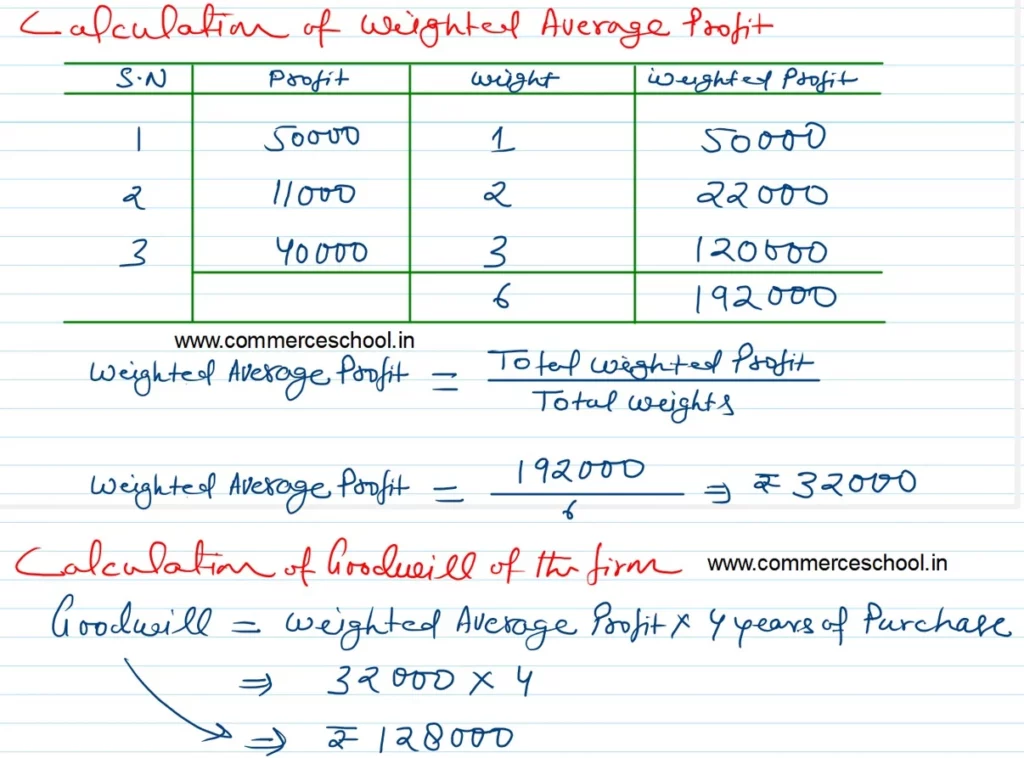 Calculation of Weighted Average Profit
S.N Profit Weight Weighted Profit
1 50000 1 50000
2 11000 2 22000
3 40000 3 120000
6 192000
www.commerceschool.in
Weighted Average Profit = Total Weighted Profit
Total Weights
Weighted Average Profit = 192000 ⇒ ₹ 32000
6
Calculation of Goodwill of the firm www.commerceschool.in
Goodwill = Weighted Average Profit × 4 years of Purchase
⇒ 32000 × 4
⇒ ₹ 128000